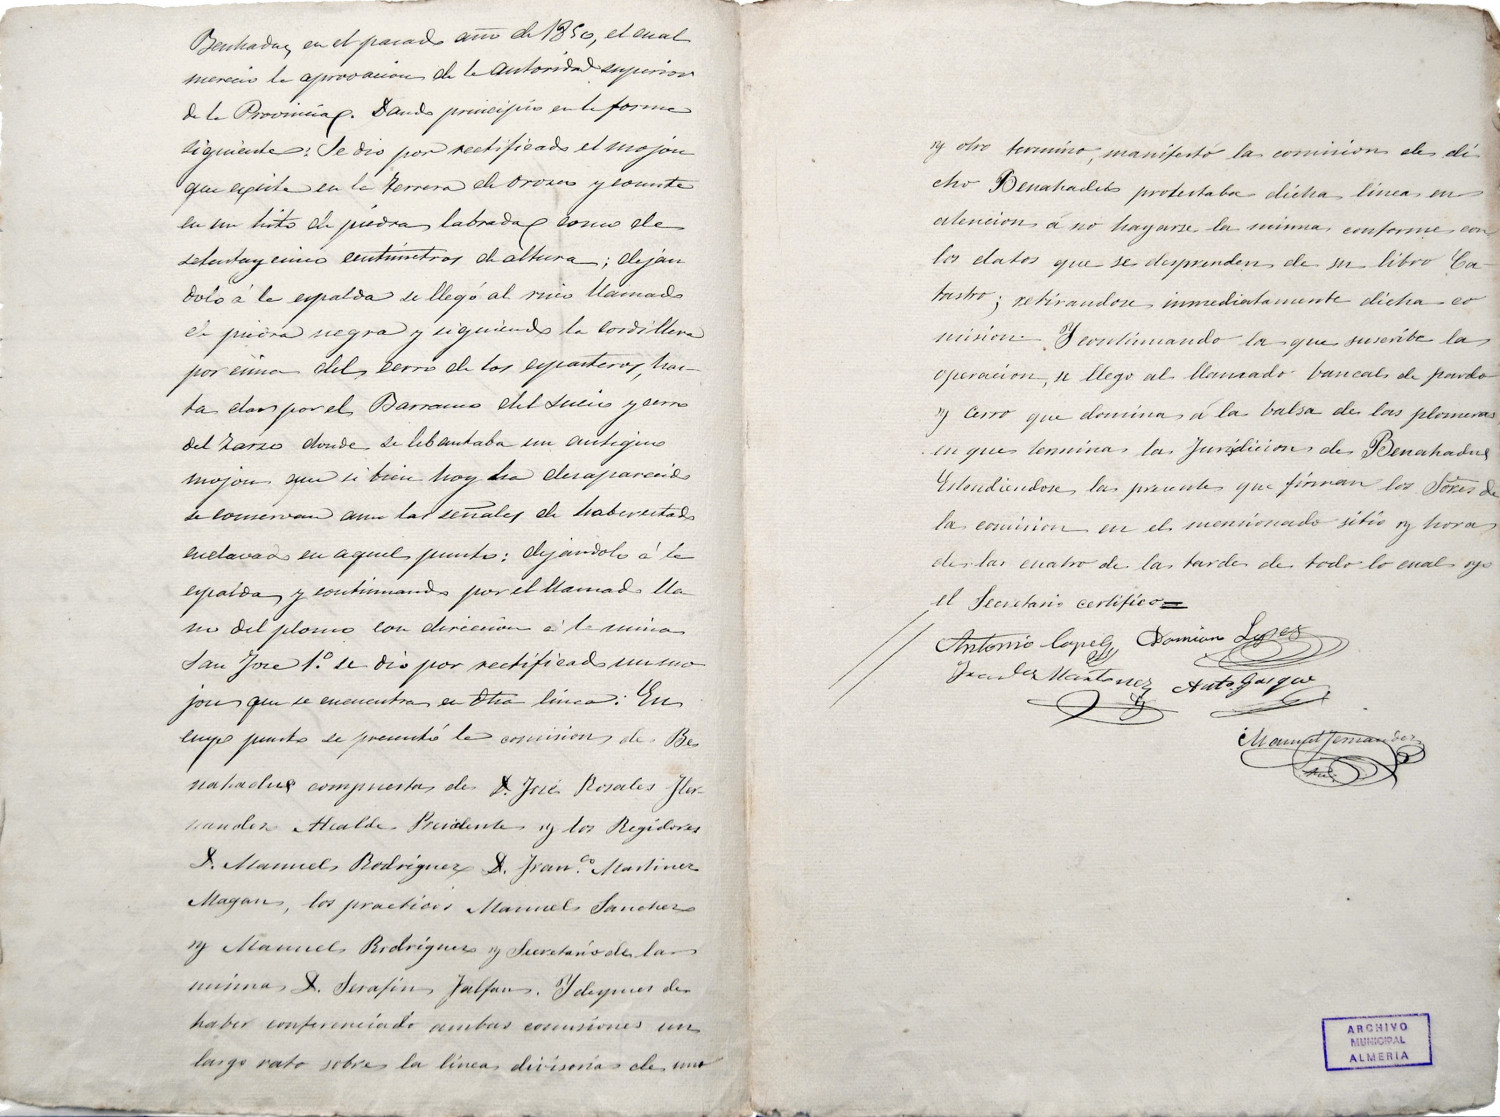 Benhadux, en el pasado año de 1850, el cual
merecio la aprovacion de la autoridad superior
de la Provincia. Dando principio en la forma
siguiente: Se dio por rectificado el mojon
que existe en la Terrera de Orozco y consiste
en un hito de piedra labrada como de
setenta y cinco centímetros de altura; deján
dolo á la espalda se llegó al sitio llamado
de piedra negra y siguiendo la cordillera
por cima del cerro de los esparteros, has-
ta dar por el Barranco del Sucio y cerro
del Zarzo donde se lebantaba un antiguo
mojon que si bien hoy ha desaparecido
se conservan aun las señales de haber estado
enclavado en aquel punto: dejándolo á la
espalda, y continuando por el llamado lla
no del plomo con direccion á la mina
San Jose 1.º se dio por rectificado un mo
jon que se encuentra en dha linea: En
cuyo punto se presentó la comision de Be
nahadux compuesta de D. José Rosales Her-
nandez Alcalde Presidente y los Regidores
D. Manuel Rodriguez D. Fran.co Martinez
Magan, los practicos Manuel Sanchez
y Manuel Rodriguez y Secretario de la
misma D. Serafin Jalfan. Y despues de
haber conferenciado ambas comisiones un
largo rato sobre la linea divisoria de uno
y otro termino, manifestó la comision de di
cho Benahadux protestaba dicha linea en
atencion á no hayarse la misma conforme con
los datos que se desprenden de su libro Ca-
tastro; retirandose inmediatamente dicha co
mision. Y continuando la que suscribe la
operacion, se llego al llamado bancal de pardo
y cerro que domina á la balsa de las plomeras
en que termina la Juridicion de Benahadux
Estendiendose la presente que firman los Sores de
la comision en el mencionado sitio y hora
de las cuatro de la tarde de todo lo cual yo
el Secretario certifico=
Antonio Lopez Damian Lopez
Martinez Anto. Gasque
Manuel Fernandez
Srio.
ARCHIVO
MUNICIPAL
ALMERIA